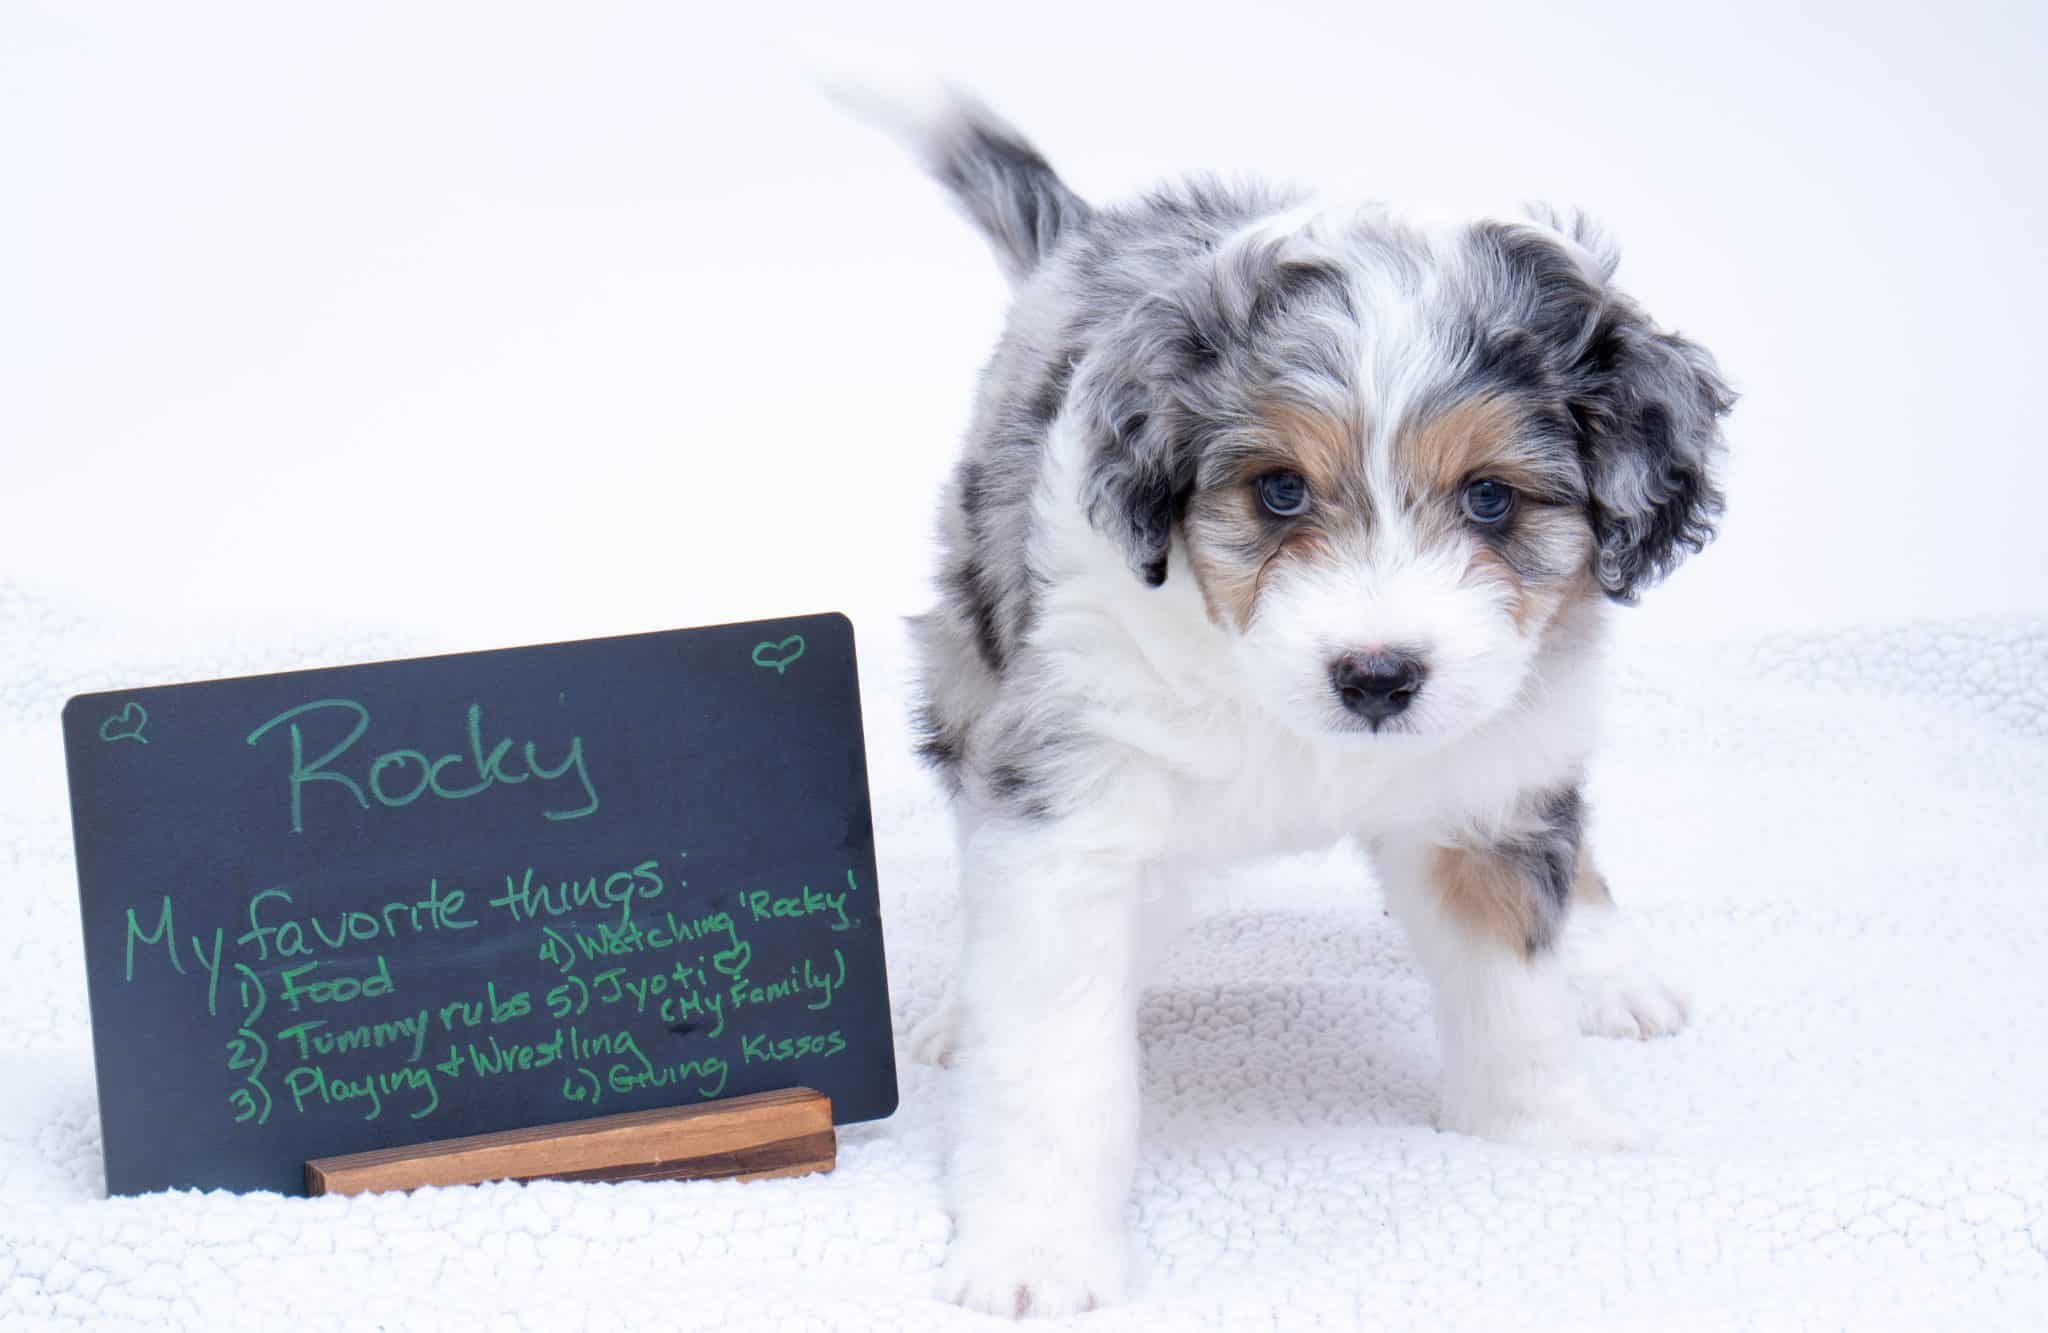 Rocky
My favorite things:
1) Food
2) Tummy rubs
3) Playing + Wrestling
4) Watching 'Rocky'
5) Jyoti
(My Family)
6) Giving Kisses